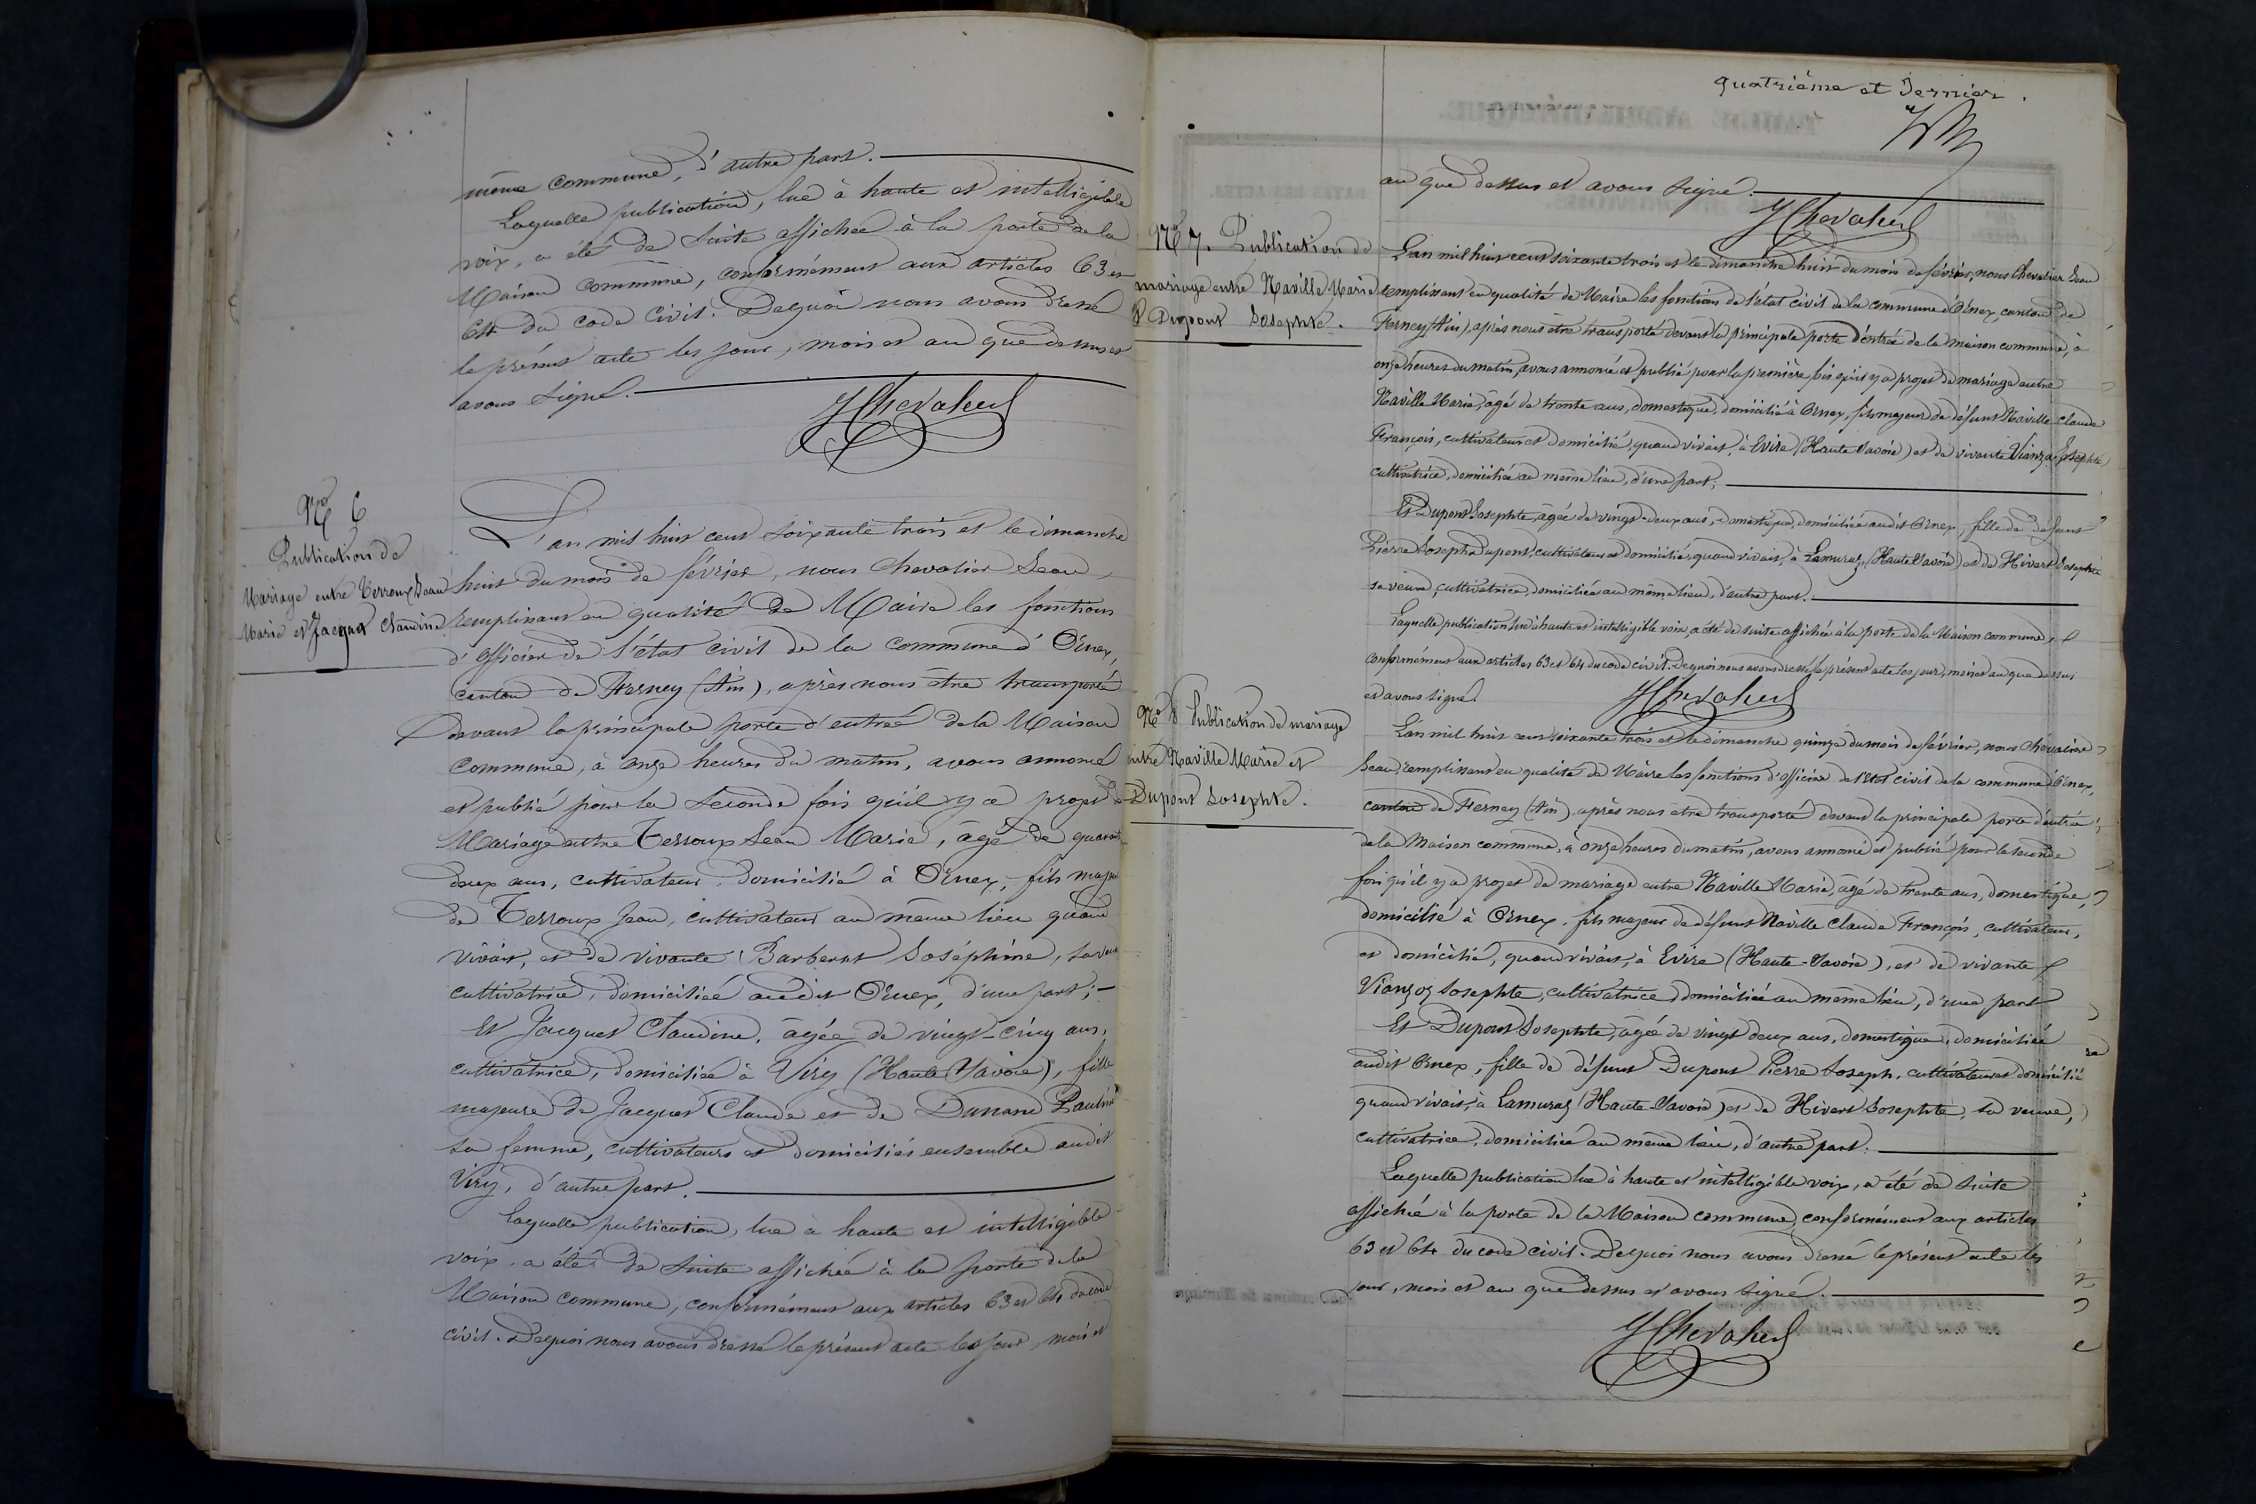 même commune, d'autre part.
Laquelle publication, lue à haute et intelligible
voix, a été de suite affichée à la porte de la
Maison commune, conformément aux articles 63 et
64 du code civil. De quoi nous avons dressé
le présent acte les jour, mois et an que dessus et
avons signé.
JChevalier
No 6
Publication de
Mariage entre Terroux Jean
Marie et Jacquet Claudine
L'an mil huit cent soixante trois et le dimanche
huit du mois de février, nous Chevalier Jean
remplissant en qualité de Maire les fonctions
d'officier de l'état civil de la commune d'Ornex,
canton de Ferney (Ain), après nous être transporté
devant la principale porte d'entrée de la Maison
commune, à onze heures du matin, avons annoncé
et publié pour la seconde fois qu'il y a projet de
Mariage entre Terroux Jean Marie, âgé de quarante
deux ans, cultivateur, domicilié à Ornex, fils majeur
de Terroux Jean, cultivateur au même lieu quand
vivait, et de vivante Joséphine, sa veuve
cultivatrice, domiciliée audit Ornex, d'une part;
Et Jacquet Claudine, âgée de vingt-cinq ans,
cultivatrice, domiciliée à Viry (Haute Savoie), fille
majeure de Jacquet Claude et de Dunand Pauline
sa femme, cultivateurs et domiciliés ensemble audit
Viry, d'autre part.
Laquelle publication, lue à haute et intelligible
voix, a été de suite affichée à la porte de la
Maison commune, conformément aux articles 63 et 64 du code
civil. De quoi nous avons dressé le présent acte les jour, mois et
quatrième et Dernier.
an que dessus et avons signé.
JChevalier
No 7. Publication de
mariage entre Naville Marie
& Dupont Josephte.
L'an mil huit cent soixante trois et le dimanche huit du mois de février, nous Chevalier Jean
remplissant en qualité de Maire les fonctions de l'état civil de la commune d'Ornex, canton de
Ferney (Ain), après nous être transporté devant la principale porte d'entrée de la maison commune, à
onze heures du matin, avons annoncé et publié pour la première fois qu'il y a projet de mariage entre
Naville Marie, âgé de trente ans, domestique, domicilié à Ornex, fils majeur de défunt Naville Claude
François, cultivateur et domicilié, quand vivait, à Evire (Haute Savoie) et de vivante Vianzoz Josephte
cultivatrice, domiciliée au même lieu, d'une part;
Et Dupont Josephte, âgée de vingt-deux ans, domestique, domiciliée audit Ornex, fille de défunt
Pierre Joseph Dupont, cultivateur et domicilié, quand vivait, à Lamuraz (Haute Savoie) et de Hivert Josephte
sa veuve, cultivatrice, domiciliée au même lieu, d'autre part.
Laquelle publication, lue à haute et intelligible voix, a été de suite affichée à la porte de la Maison commune,
conformément aux articles 63 et 64 du code civil. De quoi nous avons dressé le présent acte les jour, mois et an que dessus
et avons signé.
JChevalier
No 8 Publication de mariage
entre Naville Marie et
Dupont Josephte.
L'an mil huit cent soixante trois et le dimanche quinze du mois de février, nous Chevalier
Jean, remplissant en qualité de Maire les fonctions d'officier de l'état civil de la commune d'Ornex,
canton de Ferney (Ain), après nous être transporté devant la principale porte d'entrée
de la Maison commune, à onze heures du matin, avons annoncé et publié pour la seconde
fois qu'il y a projet de mariage entre Naville Marie, âgé de trente ans, domestique,
domicilié à Ornex, fils majeur de défunt Naville Claude François, cultivateur,
et domicilié, quand vivait, à Evire (Haute-Savoie), et de vivante
Vianzoz Josephte, cultivatrice domiciliée au même lieu, d'une part
Et Dupont Josephte, âgée de vingt deux ans, domestique, domiciliée
audit Ornex, fille de défunt Dupont Pierre Joseph, cultivateur et domicilié
quand vivait, à Lamuraz (Haute Savoie) et de Hivert Josephte, sa veuve,
cultivatrice, domiciliée au même lieu, d'autre part.
Laquelle publication lue à haute et intelligible voix, a été de suite
affichée à la porte de la Maison commune, conformément aux articles
63 et 64 du code civil. De quoi nous avons dressé le présent acte les
jour, mois et an que dessus et avons signé.
JChevalier